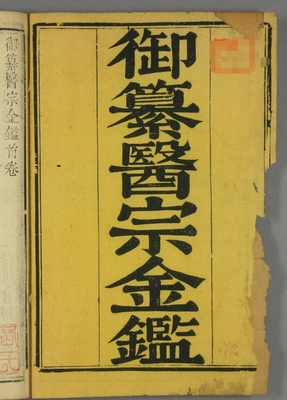 御纂醫宗金鑑
御纂醫宗金鑑首卷